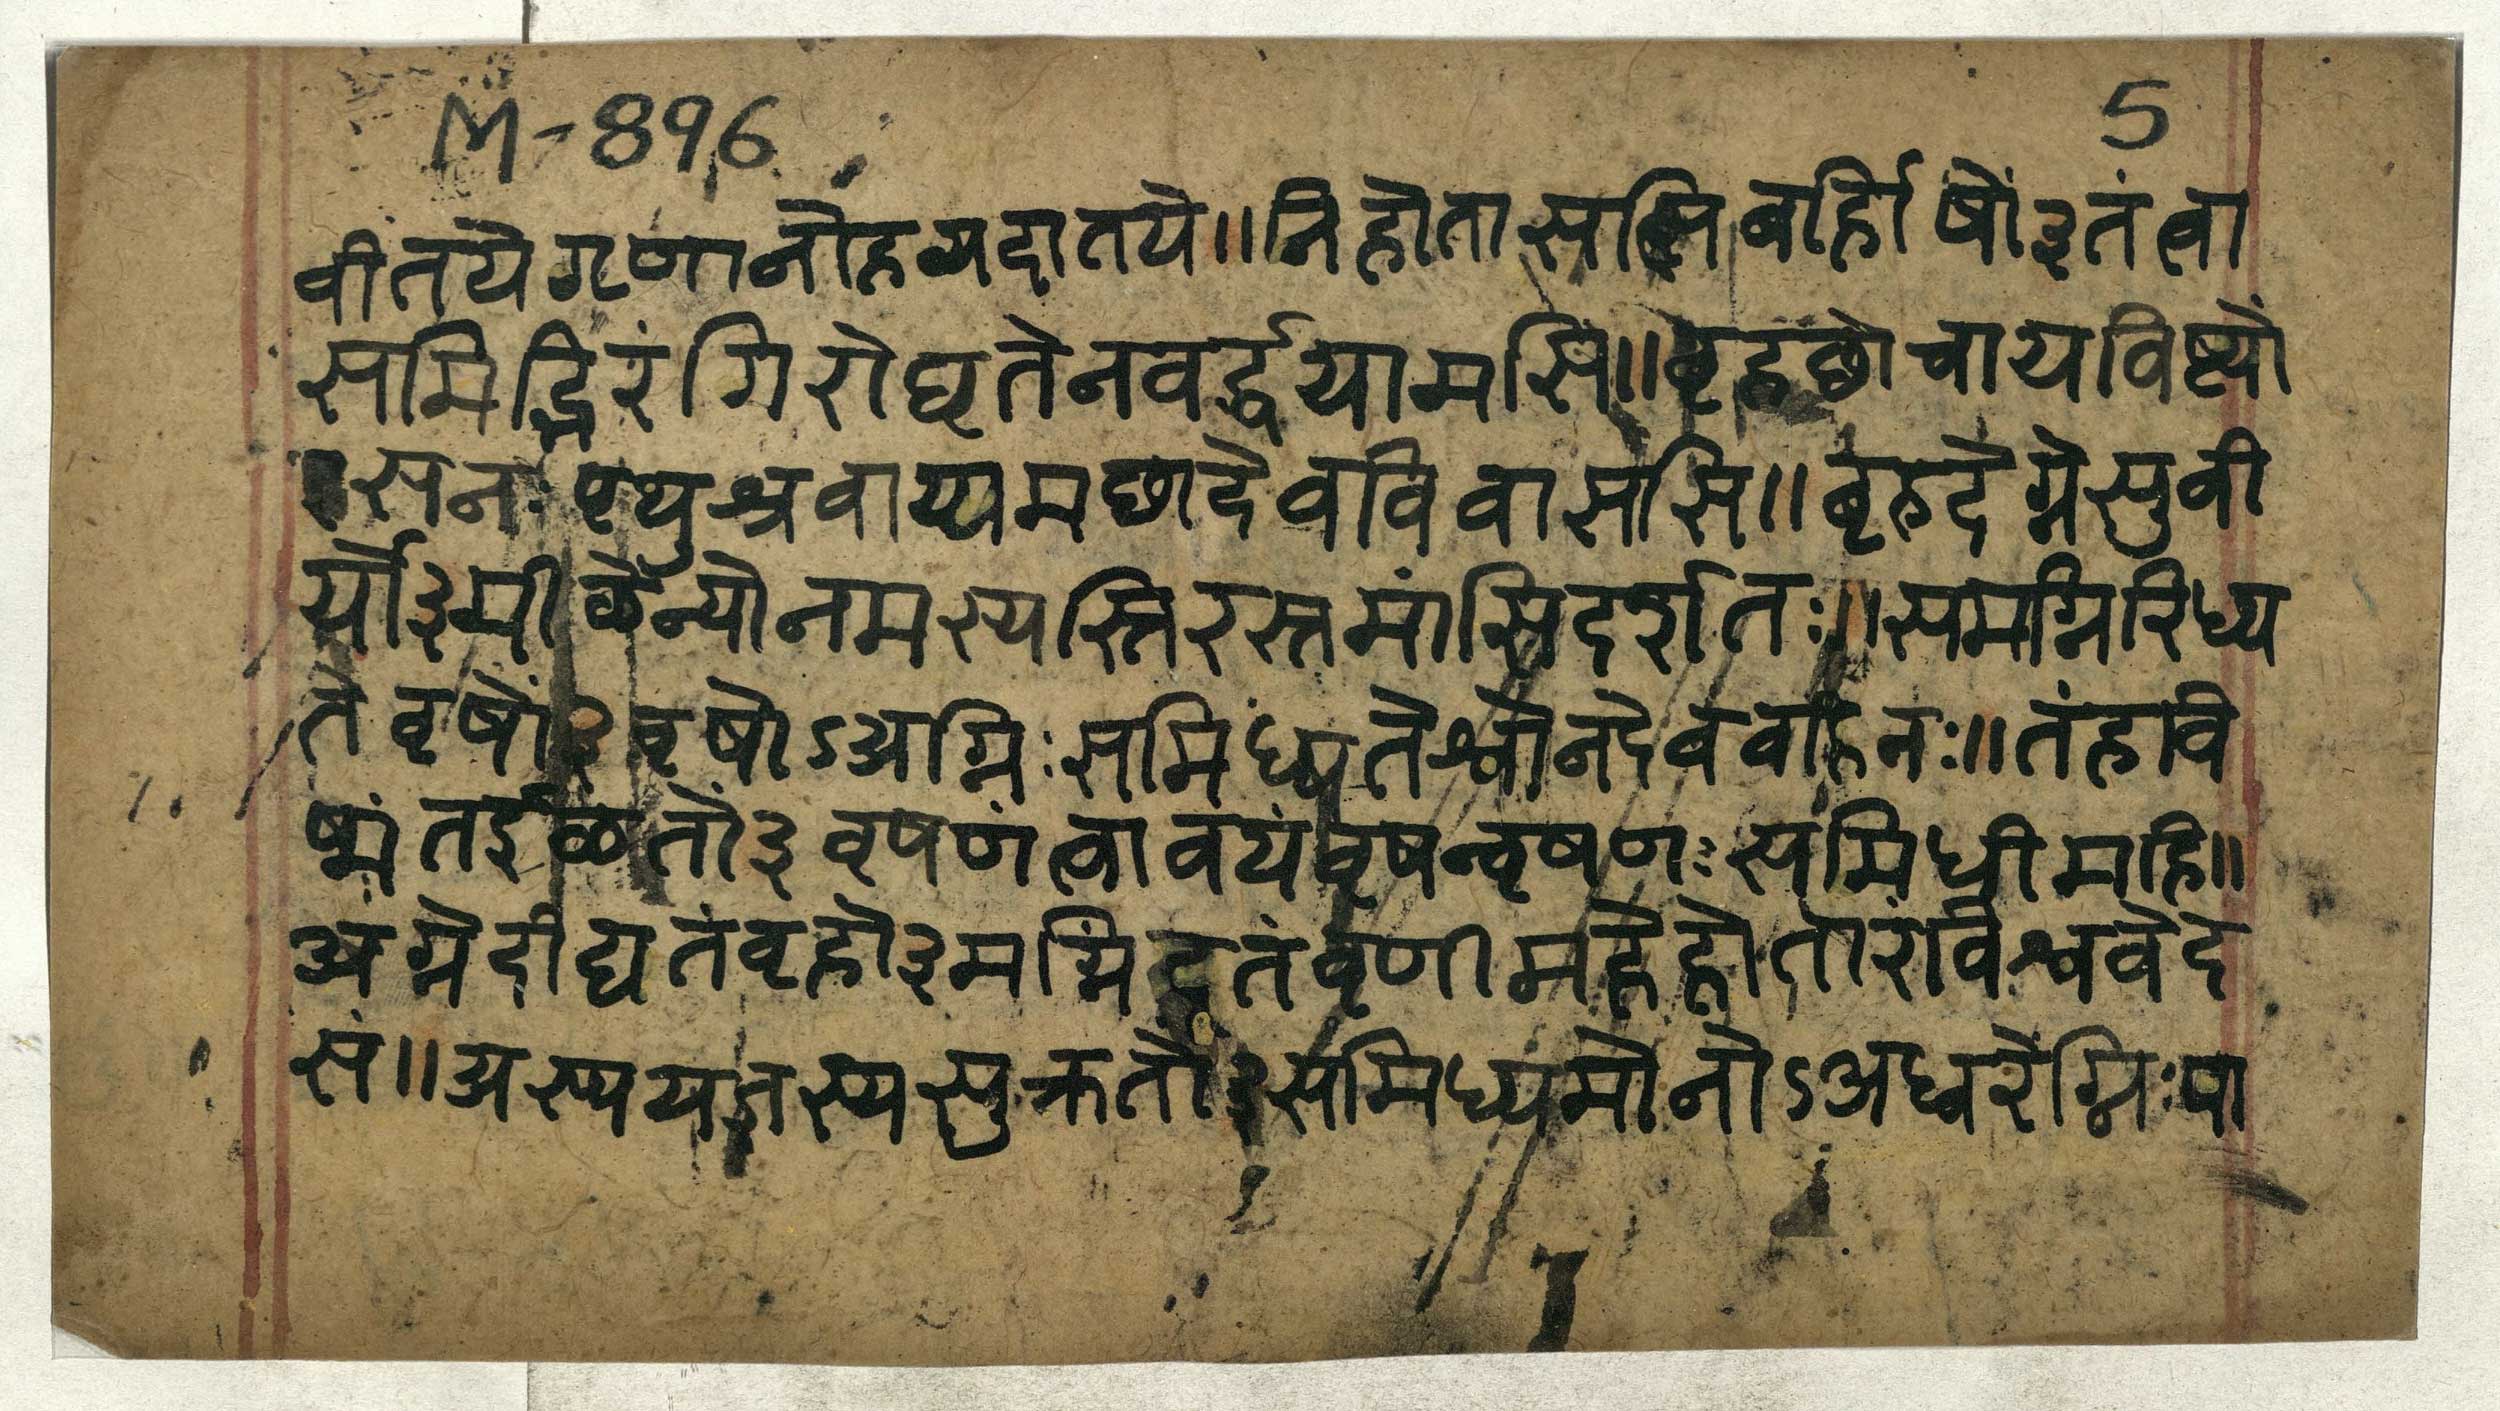 M-896 5
वीतये गृणानो हव्यदातये॥ नि होता सत्सि बर्हिषों३ तं त्वा
समिद्भिरंगिरो घृतेन वर्द्धयामसि॥ बृहछोचा यविष्ट्यों
३ स नः पृथुश्रवाय्यमछा देव विवाससि॥ बृहदग्नेसुवी
र्यों३मीळेन्यो नमस्यस्तिरस्तमांसि दर्शतः॥ समग्निरिध्य
ते वृषों३ वृषोऽअग्निः समिध्यतेश्वो न देववाहनः॥ तं हवि
ष्मंत ईळतों३ वृषणं त्वा वयं वृषन्वृषणः समिधीमहि॥
अग्ने दीद्यतं बृहों३मग्निं दूतं वृणीमहे होतारं विश्ववेद
सं॥ अस्य यज्ञस्य सुक्रतों३ समिध्यमानोऽअध्वरेग्निः पा